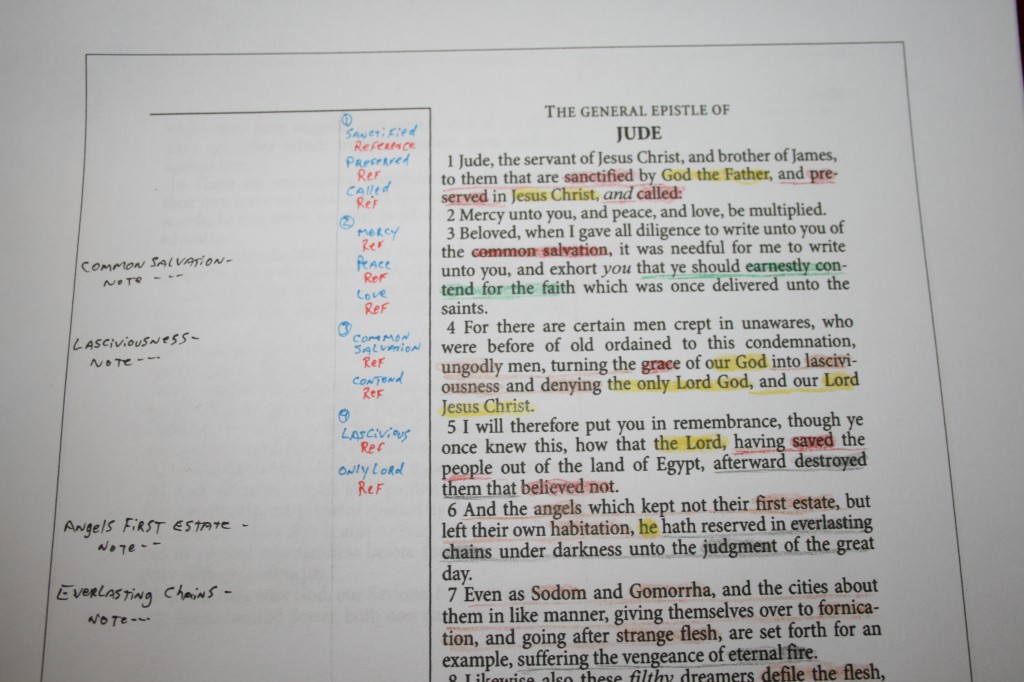 COMMON SALVATION-
NOTE ---
LASCIVIOUSNESS-
NOTE---
ANGELS FIRST ESTATE -
NOTE--
EVERLASTING CHAINS -
NOTE---
1
SANCTIFIED
REFERENCE
PRESERVED
REF
CALLED
REF
2
MERCY
REF
PEACE
REF
LOVE
REF
3
COMMON
SALVATION
REF
CONTEND
REF
4
LASCIVIOUS
REF
ONLY LORD
REF
THE GENERAL EPISTLE OF
JUDE
1 Jude, the servant of Jesus Christ, and brother of James,
to them that are sanctified by God the Father, and pre-
served in Jesus Christ, and called:
2 Mercy unto you, and peace, and love, be multiplied.
3 Beloved, when I gave all diligence to write unto you of
the common salvation, it was needful for me to write
unto you, and exhort you that ye should earnestly con-
tend for the faith which was once delivered unto the
saints.
4 For there are certain men crept in unawares, who
were before of old ordained to this condemnation,
ungodly men, turning the grace of our God into lascivi-
ousness and denying the only Lord God, and our Lord
Jesus Christ.
5 I will therefore put you in remembrance, though ye
once knew this, how that the Lord, having saved the
people out of the land of Egypt, afterward destroyed
them that believed not.
6 And the angels which kept not their first estate, but
left their own habitation, he hath reserved in everlasting
chains under darkness unto the judgment of the great
day.
7 Even as Sodom and Gomorrha, and the cities about
them in like manner, giving themselves over to fornica-
tion, and going after strange flesh, are set forth for an
example, suffering the vengeance of eternal fire.
8 Likewise also these filthy dreamers defile the flesh,